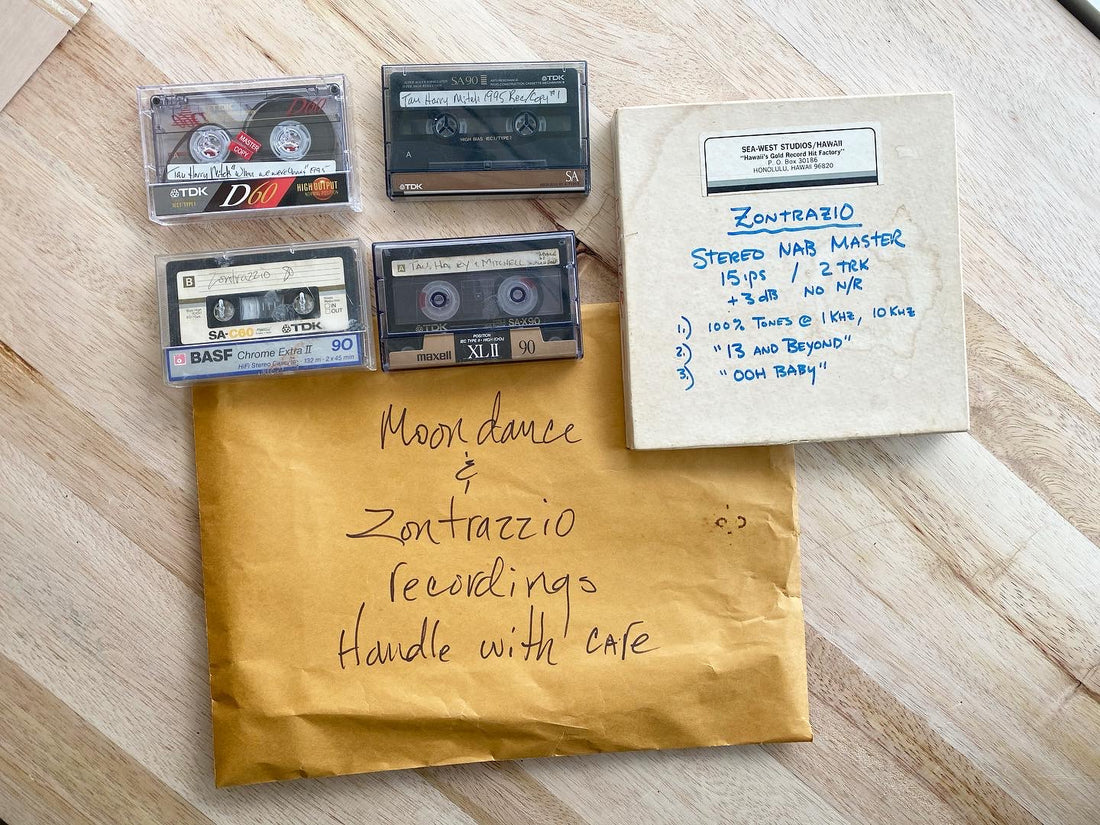 TDK
D60
A
MASTER
COPY
Tau Harry Mitch "When we were Young" 1995
TDK
IEC I/TYPE I
D60
HIGH OUTPUT
NORMAL POSITION
SA90
TDK
Tau Harry Mitch 1995 Rec/Copy #1
HIGH BIAS IECII/TYPE II
A
TDK
SA
B
Zontrazzio
SA-C60
TDK
IN
OUT
BASF Chrome Extra II 90
HiFi Stereo Cassette 132 m · 2 x 45 min
A
TAU, HARRY & MITCHELL
TDK
SA-X90
POSITION
maxell XLII 90
SEA-WEST STUDIOS/HAWAII
"Hawaii's Gold Record Hit Factory"
P. O. Box 30186
HONOLULU, HAWAII 96820
ZONTRAZIO
STEREO NAB MASTER
15 ips / 2 TRK
+3 dB NO N/R
1.) 100% TONES @ 1 KHZ, 10 KHZ
2.) "13 AND BEYOND"
3.) "OOH BABY"
Moondance
&
Zontrazzio
recordings
Handle with care